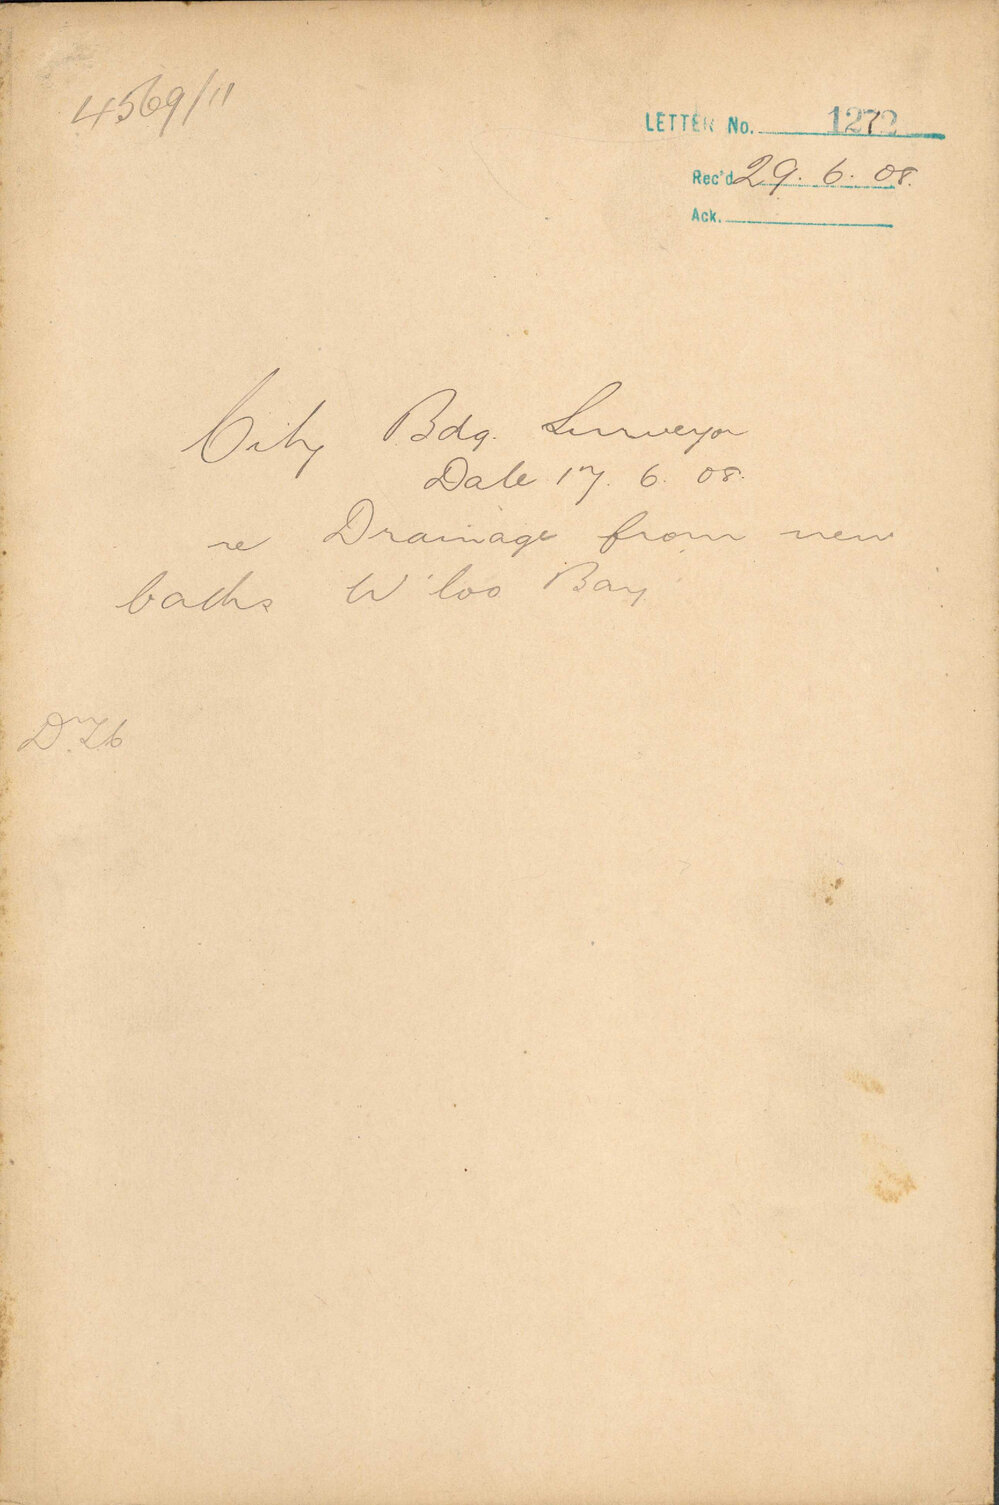 4569/11
LETTER No. 1272
Rec'd 29. 6. 08.
Ack.
City Bdg. Surveyor
Date 17. 6. 08.
re Drainage from new
baths W'loo Bay